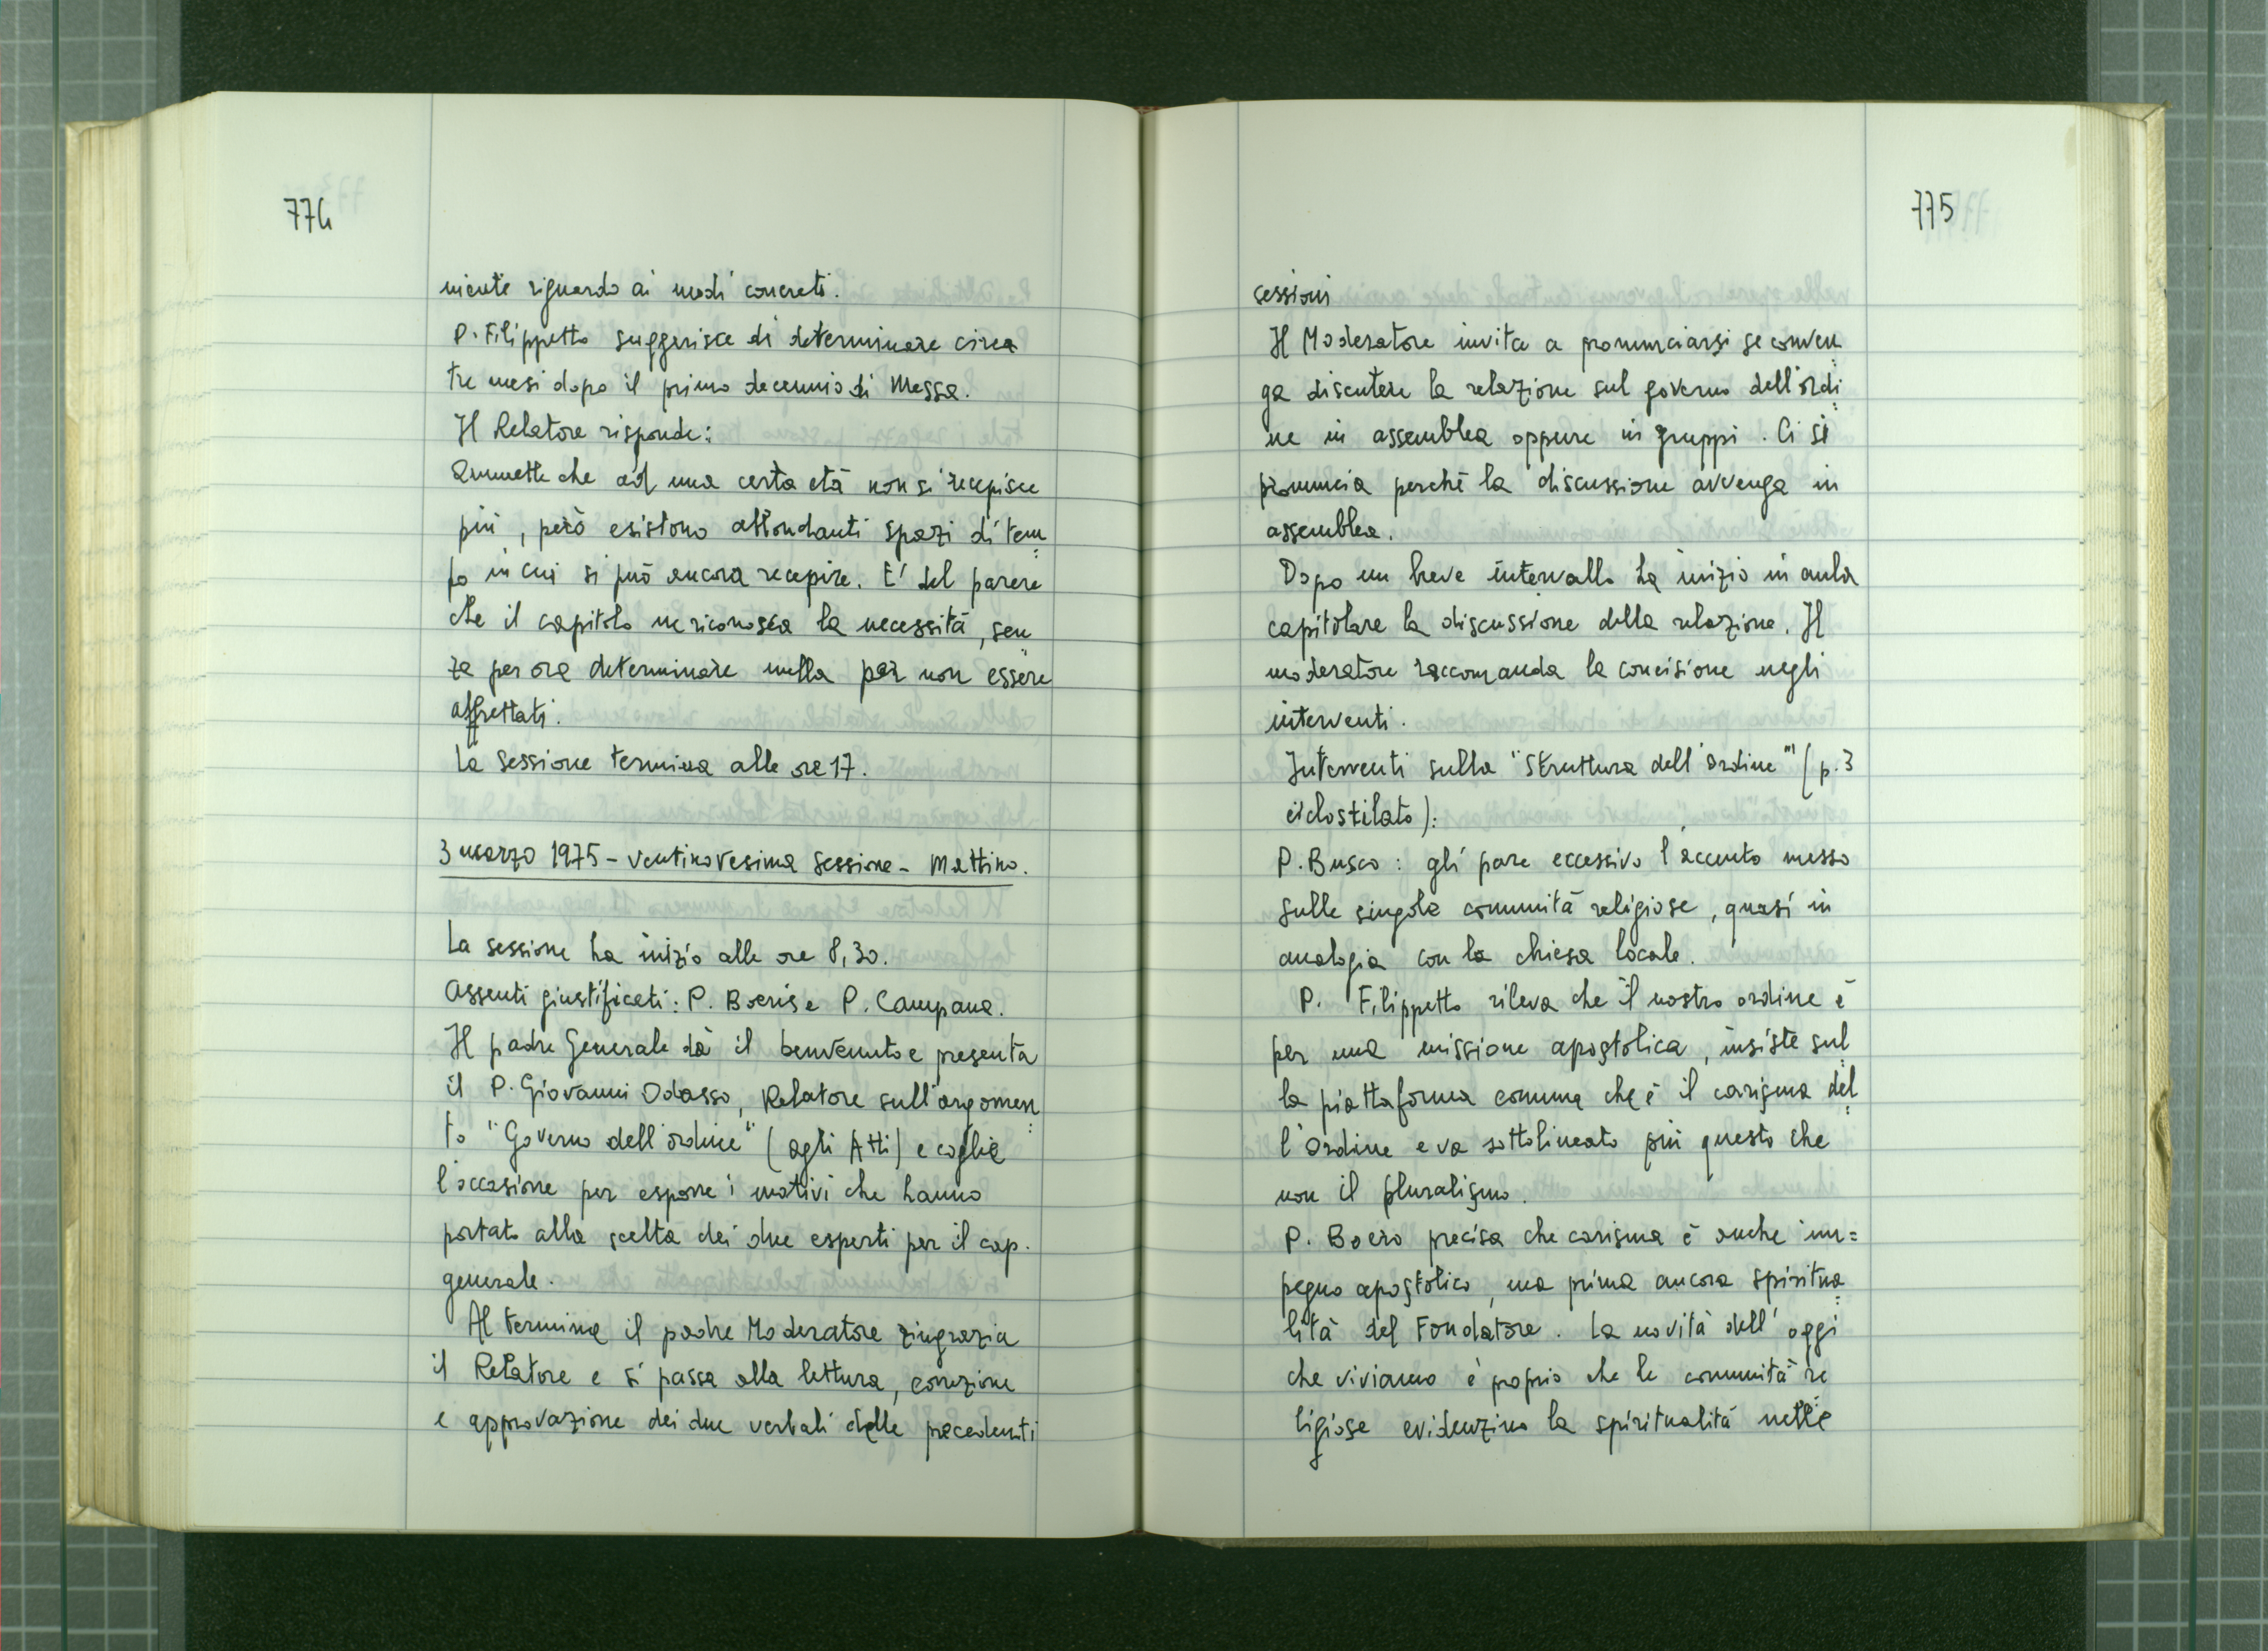 774
niente riguardo ai modi concreti.
P. Filippetto suggerisce di determinare circa
tre mesi dopo il primo decennio di Messa.
Il Relatore risponde:
Ammette che ad una certa età non si recepisce
più, però esistono abbondanti spazi di tem=
po in cui si può ancora recepire. E' del parere
che il capitolo ne riconosca la necessità, sen=
za per ora determinare nulla per non essere
affrettati.
La sessione termina alle ore 17.
3 marzo 1975 - Ventinovesima Sessione - Mattino.
La sessione ha inizio alle ore 8,30.
Assenti giustificati: P. Boeris e P. Campana.
Il padre Generale dà il benvenuto e presenta
il P. Giovanni Odasso, Relatore sull'argomen=
to "Governo dell'ordine" (agli Atti) e coglie
l'occasione per esporre i motivi che hanno
portato alla scelta dei due esperti per il cap.
generale.
Al termine il padre Moderatore ringrazia
il Relatore e si passa alla lettura, correzione
e approvazione dei due verbali delle precedenti
775
sessioni
Il Moderatore invita a pronunciarsi se conven=
ga discutere la relazione sul governo dell'ordi=
ne in assemblea oppure in gruppi. Ci si
pronuncia perché la discussione avvenga in
assemblea.
Dopo un breve intervallo ha inizio in aula
capitolare la discussione della relazione. Il
moderatore raccomanda la concisione negli
interventi.
Interventi sulla "Struttura dell'Ordine" (p. 3
ciclostilato):
P. Busco: gli pare eccessivo l'accento messo
sulle singole comunità religiose, quasi in
analogia con la chiesa locale.
P. Filippetto rileva che il nostro ordine è
per una missione apostolica, insiste sul=
la piattaforma comune che è il carisma del=
l'Ordine e va sottolineato più questo che
non il pluralismo.
P. Boero precisa che carisma è anche im=
pegno apostolico, ma prima ancora spiritua=
lità del Fondatore. La novità dell'oggi
che viviamo è proprio che le comunità re=
ligiose evidenzino la spiritualità nelle